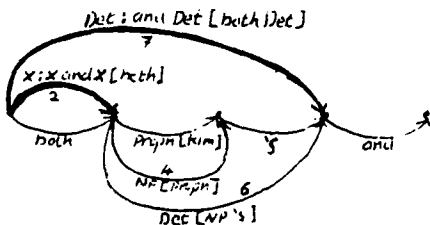 Det : and Det [both Det]
7
X : X and X [both]
2
both Prpn [kim] 's and
4
NP [Prpn]
6
Det [NP 's]